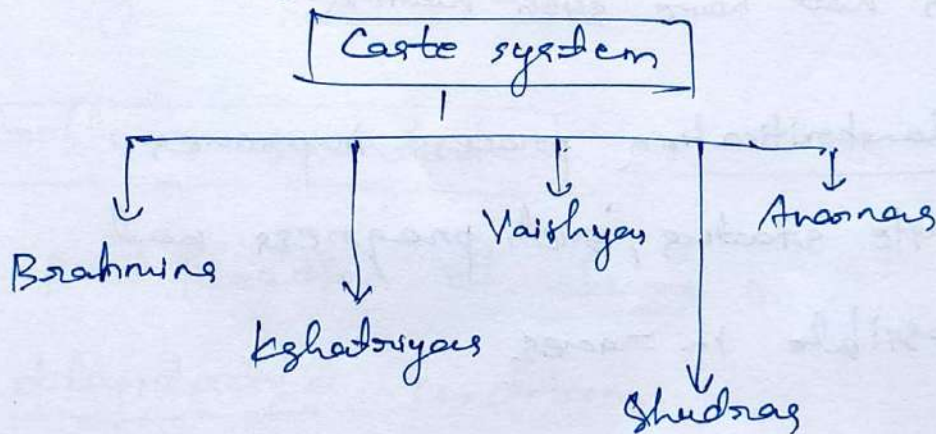 Caste system
Brahmins
Kshatriyas
Vaishyas
Shudras
Avarnas